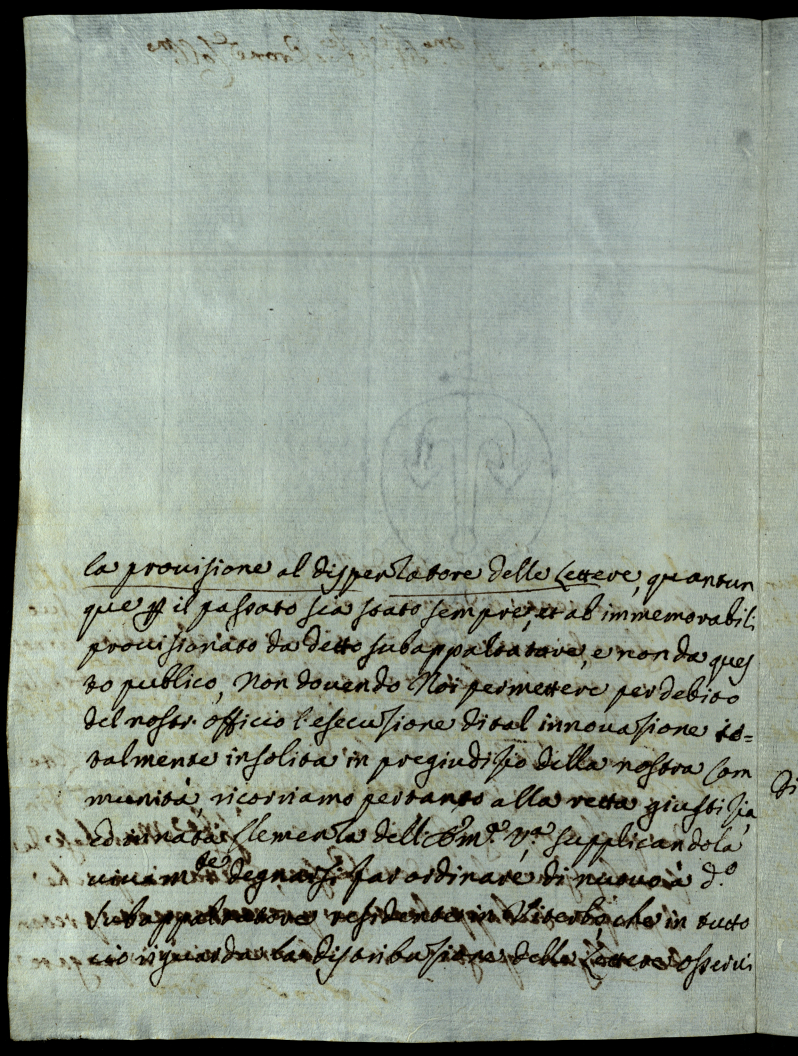 la provisione al dispensatore delle Lettere, quantun
que p il passato sia stato sempre, et ab immemorabili
provisionato da detto subappaltatore, e non da ques
to publico, Non dovendo Noi permettere per debito
del nostr. officio l'esecuzione di tal innovazione to=
talmente insolita in pregiudizio della nostra Com
munità, ricorriamo pertanto alla retta giustizia,
ed innata Clemenza dell'Em.ª V.ª supplicandola
vivam.te degnarsi far ordinare di nuovo à d.º
Subappaltatore residente in Viterbo, che in tutto
ciò riguarda la distribuzione delle Lettere osservi